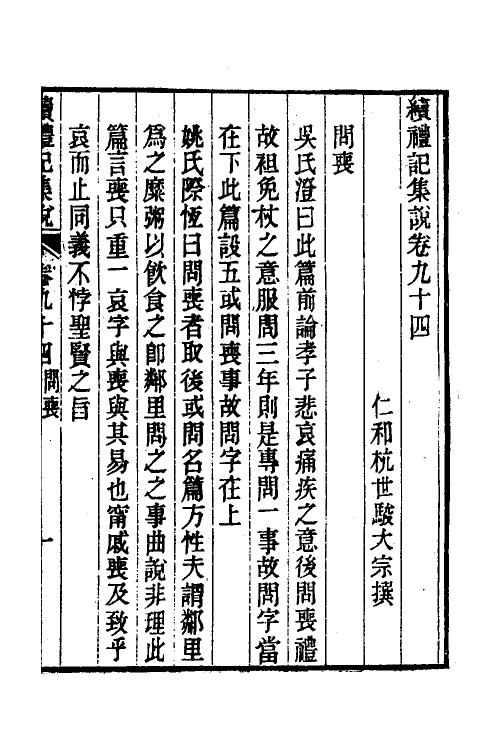 續禮記集說卷九十四
仁和杭世駿大宗撰
問喪
吳氏澄曰此篇前論孝子悲哀痛疾之意後問喪禮
故袒免杖之意服問三年則是專問一事故問字當
在下此篇設五或問喪事故問字在上
姚氏際恆曰問喪者取後或問名篇方性夫謂鄰里
為之糜粥以飲食之卽鄰里問之之事曲說非理此
篇言喪只重一哀字與喪與其易也甯戚喪及致乎
哀而止同義不悖聖賢之旨
續禮記集說 卷九十四 問喪 一